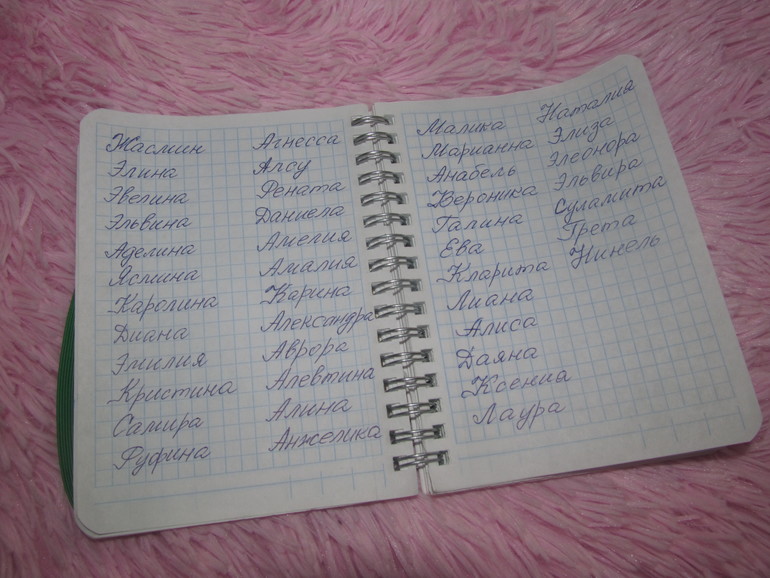 Жасмин
Элина
Эвелина
Эльвина
Аделина
Ясмина
Каролина
Диана
Эмилия
Кристина
Самира
Руфина
Агнесса
Алсу
Рената
Даниела
Амелия
Амалия
Карина
Александра
Аврора
Алевтина
Алина
Анжелика
Малика
Марианна
Анабель
Вероника
Галина
Ева
Кларита
Лиана
Алиса
Даяна
Ксения
Лаура
Наталия
Элиза
Элеонора
Эльвира
Суламита
Грета
Нинель